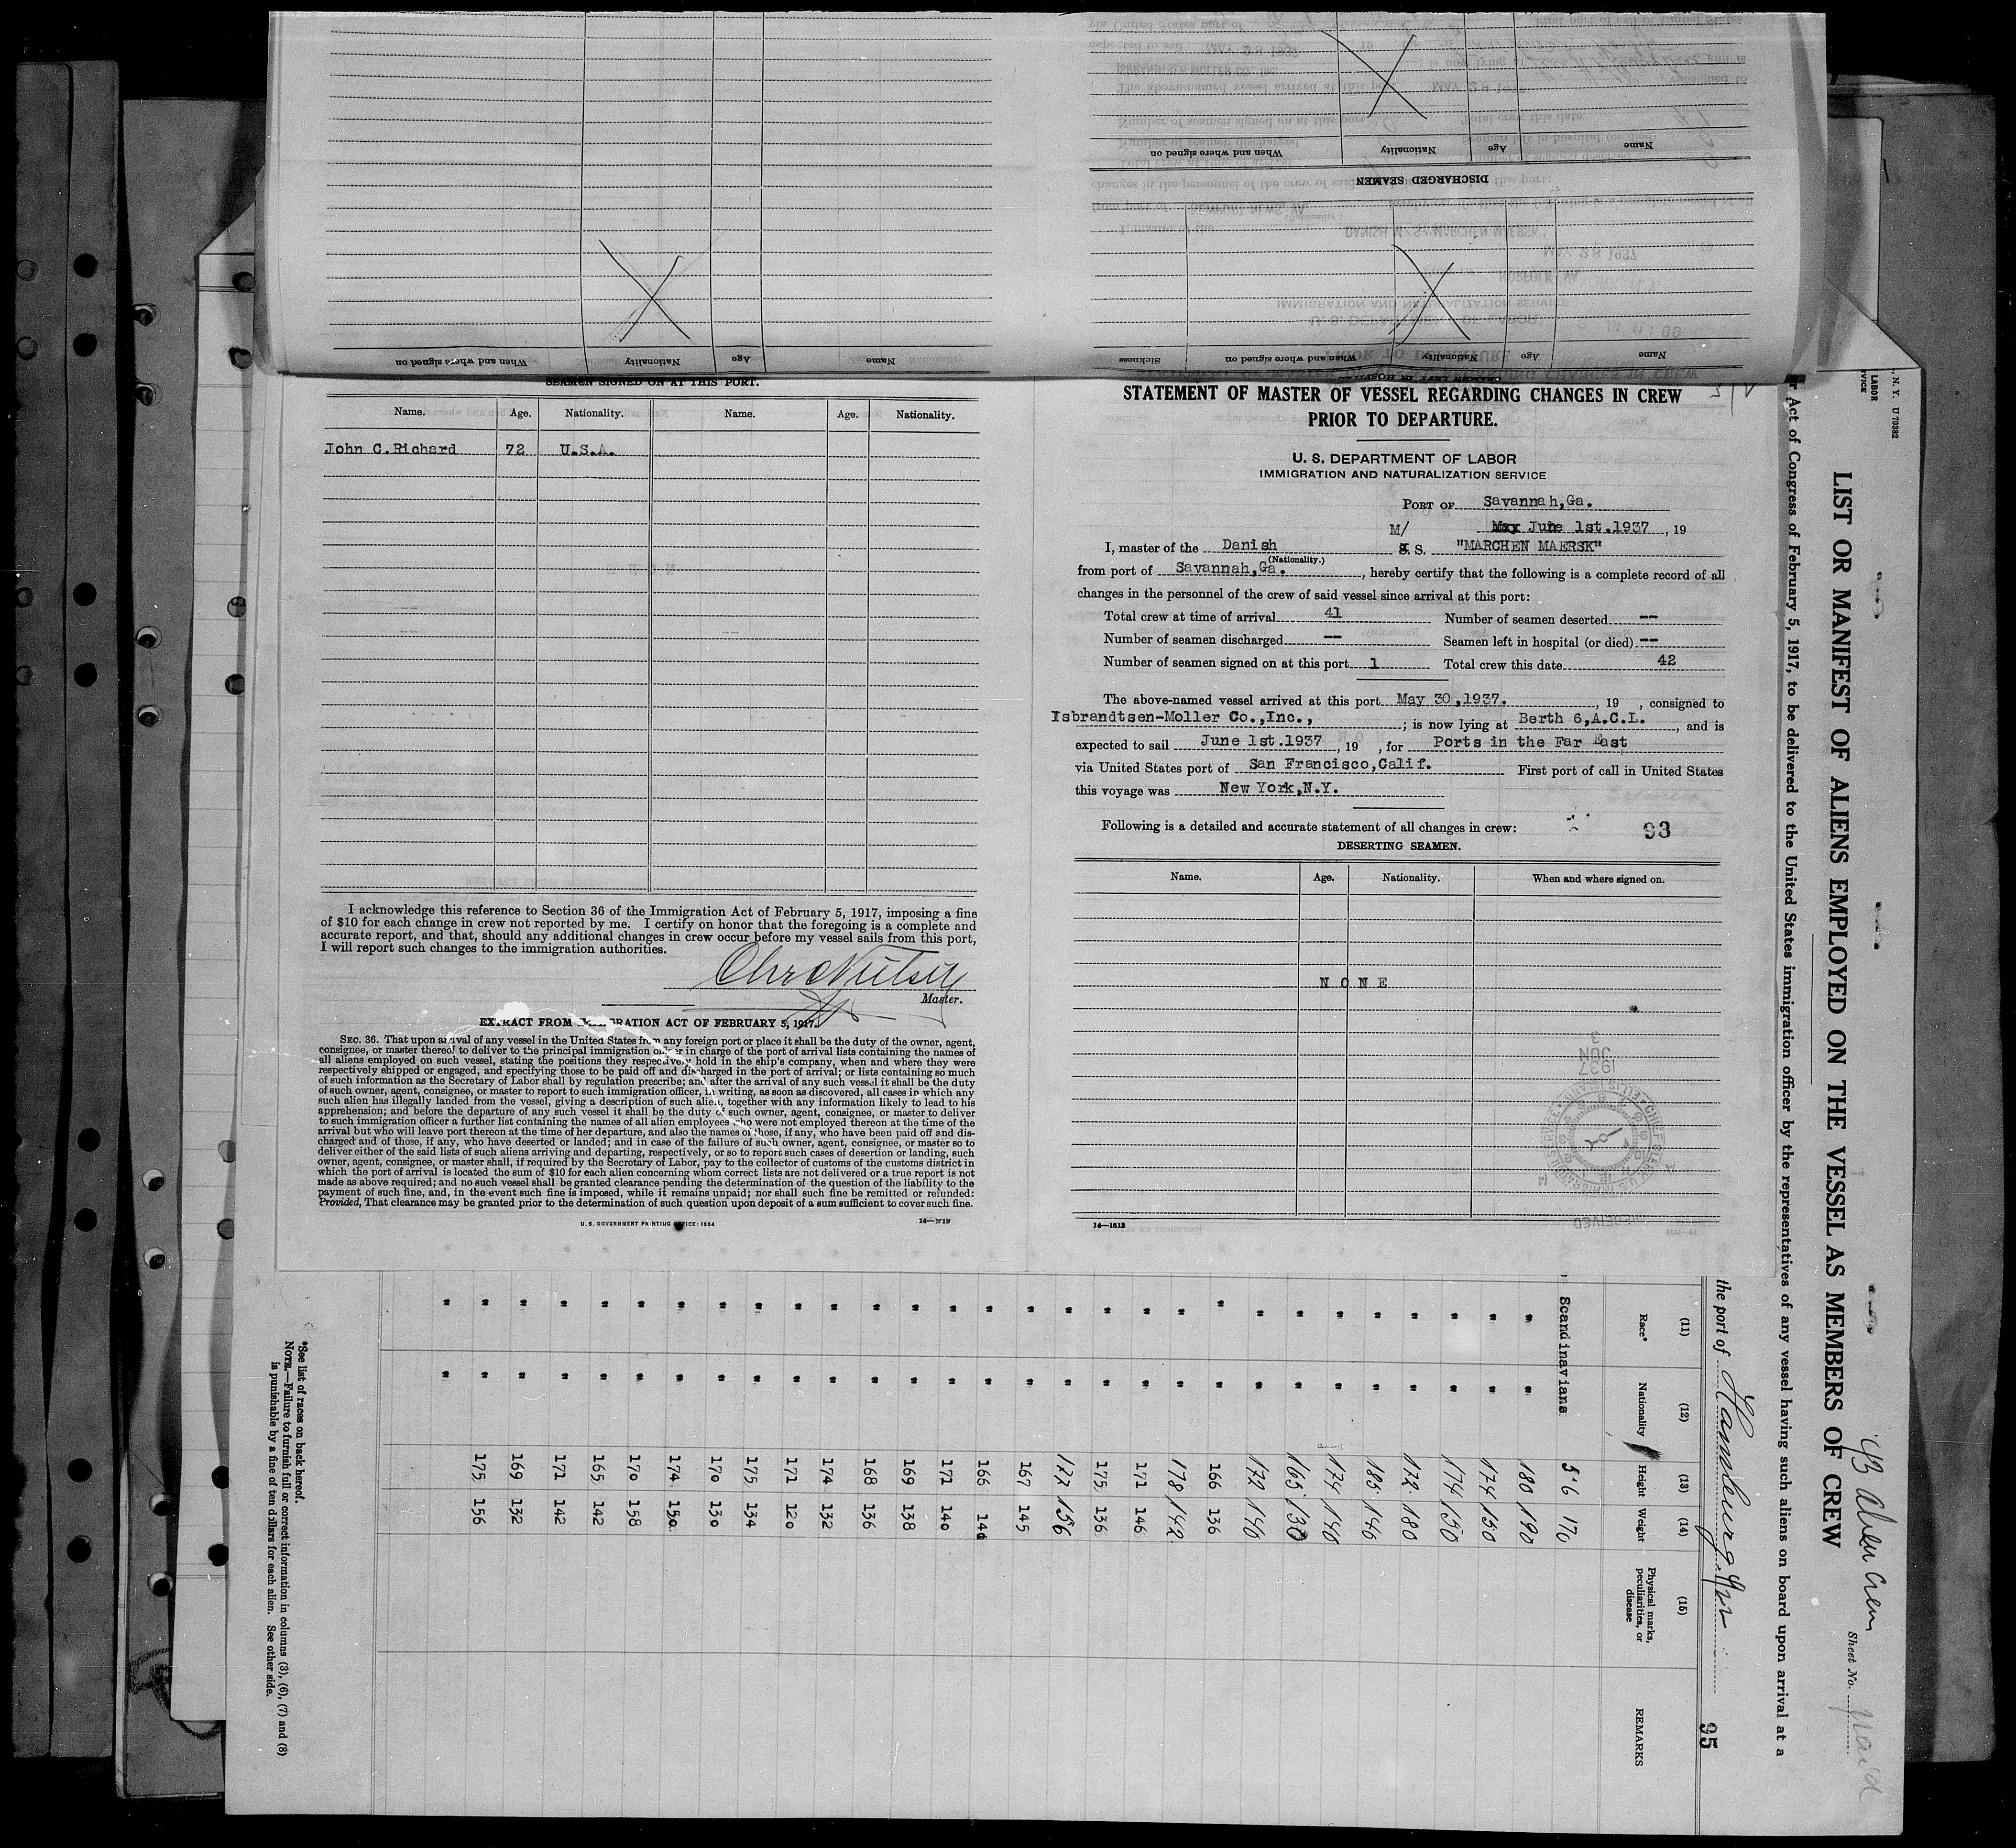 SEAMEN SIGNED ON AT THIS PORT.
Name. Age. Nationality. Name. Age. Nationality.
John C.Richard 72 U.S.A.
I acknowledge this reference to Section 36 of the Immigration Act of February 5, 1917, imposing a fine
of $10 for each change in crew not reported by me. I certify on honor that the foregoing is a complete and
accurate report, and that, should any additional changes in crew occur before my vessel sails from this port,
I will report such changes to the immigration authorities.
Master.
EXTRACT FROM IMMIGRATION ACT OF FEBRUARY 5, 1917.
SEC. 36. That upon arrival of any vessel in the United States from any foreign port or place it shall be the duty of the owner, agent,
consignee, or master thereof to deliver to the principal immigration officer in charge of the port of arrival lists containing the names of
all aliens employed on such vessel, stating the positions they respectively hold in the ship's company, when and where they were
respectively shipped or engaged, and specifying those to be paid off and discharged in the port of arrival; or lists containing so much
of such information as the Secretary of Labor shall by regulation prescribe; and after the arrival of any such vessel it shall be the duty
of such owner, agent, consignee, or master to report to such immigration officer, in writing, as soon as discovered, all cases in which any
such alien has illegally landed from the vessel, giving a description of such alien, together with any information likely to lead to his
apprehension; and before the departure of any such vessel it shall be the duty of such owner, agent, consignee, or master to deliver
to such immigration officer a further list containing the names of all alien employees who were not employed thereon at the time of the
arrival but who will leave port thereon at the time of her departure, and also the names of those, if any, who have been paid off and dis-
charged and of those, if any, who have deserted or landed; and in case of the failure of such owner, agent, consignee, or master so to
deliver either of the said lists of such aliens arriving and departing, respectively, or so to report such cases of desertion or landing, such
owner, agent, consignee, or master shall, if required by the Secretary of Labor, pay to the collector of customs of the customs district in
which the port of arrival is located the sum of $10 for each alien concerning whom correct lists are not delivered or a true report is not
made as above required; and no such vessel shall be granted clearance pending the determination of the question of the liability to the
payment of such fine, and, in the event such fine is imposed, while it remains unpaid; nor shall such fine be remitted or refunded:
Provided, That clearance may be granted prior to the determination of such question upon deposit of a sum sufficient to cover such fine.
U. S. GOVERNMENT PRINTING OFFICE: 1934
Name Age Nationality When and where signed on
DISCHARGED SEAMEN
Name Age Nationality When and where signed on
Name Age Nationality When and where signed on Sickness
SEAMEN LEFT IN HOSPITAL
STATEMENT OF MASTER OF VESSEL REGARDING CHANGES IN CREW
PRIOR TO DEPARTURE.
U. S. DEPARTMENT OF LABOR
IMMIGRATION AND NATURALIZATION SERVICE
PORT OF Savannah,Ga.
M/ June 1st.1937, 19
I, master of the Danish S. "MARCHEN MAERSK"
(Nationality.)
from port of Savannah,Ga., hereby certify that the following is a complete record of all
changes in the personnel of the crew of said vessel since arrival at this port:
Total crew at time of arrival 41 Number of seamen deserted --
Number of seamen discharged -- Seamen left in hospital (or died) --
Number of seamen signed on at this port 1 Total crew this date 42
The above-named vessel arrived at this port May 30,1937., 19 , consigned to
Isbrandtsen-Moller Co.,Inc., ; is now lying at Berth 6,A.C.L., and is
expected to sail June 1st.1937, 19 , for Ports in the Far East
via United States port of San Francisco,Calif. First port of call in United States
this voyage was New York,N.Y.
Following is a detailed and accurate statement of all changes in crew: 93
DESERTING SEAMEN.
Name. Age. Nationality. When and where signed on.
NONE
14—1613
LIST OR MANIFEST OF ALIENS EMPLOYED ON THE VESSEL AS MEMBERS OF CREW
Sheet No.
Act of Congress of February 5, 1917, to be delivered to the United States immigration officer by the representatives of any vessel having such aliens on board upon arrival at a
the port of Hamburg
95
(11) (12) (13) (14) (15)
Race* Nationality Height Weight Physical marks, peculiarities, or disease REMARKS
Scandinavians 5'6 170
" " 180 190
" " 174 150
" " 174 150
" " 172 180
" " 185 146
" " 174 140
" " 165 130
" " 172 140
" " 166 136
" " 178 142
" " 171 146
" " 175 136
" " 177 156
" " 167 145
" " 166 140
" " 171 140
" " 169 138
" " 168 136
" " 174 132
" " 171 120
" " 175 134
" " 170 130
" " 174 150
" " 170 158
" " 165 142
" " 171 142
" " 169 132
" " 175 156
*See list of races on back hereof.
NOTE.—Failure to furnish full or correct information in columns (3), (6), (7) and (8)
is punishable by a fine of ten dollars for each alien. See other side.